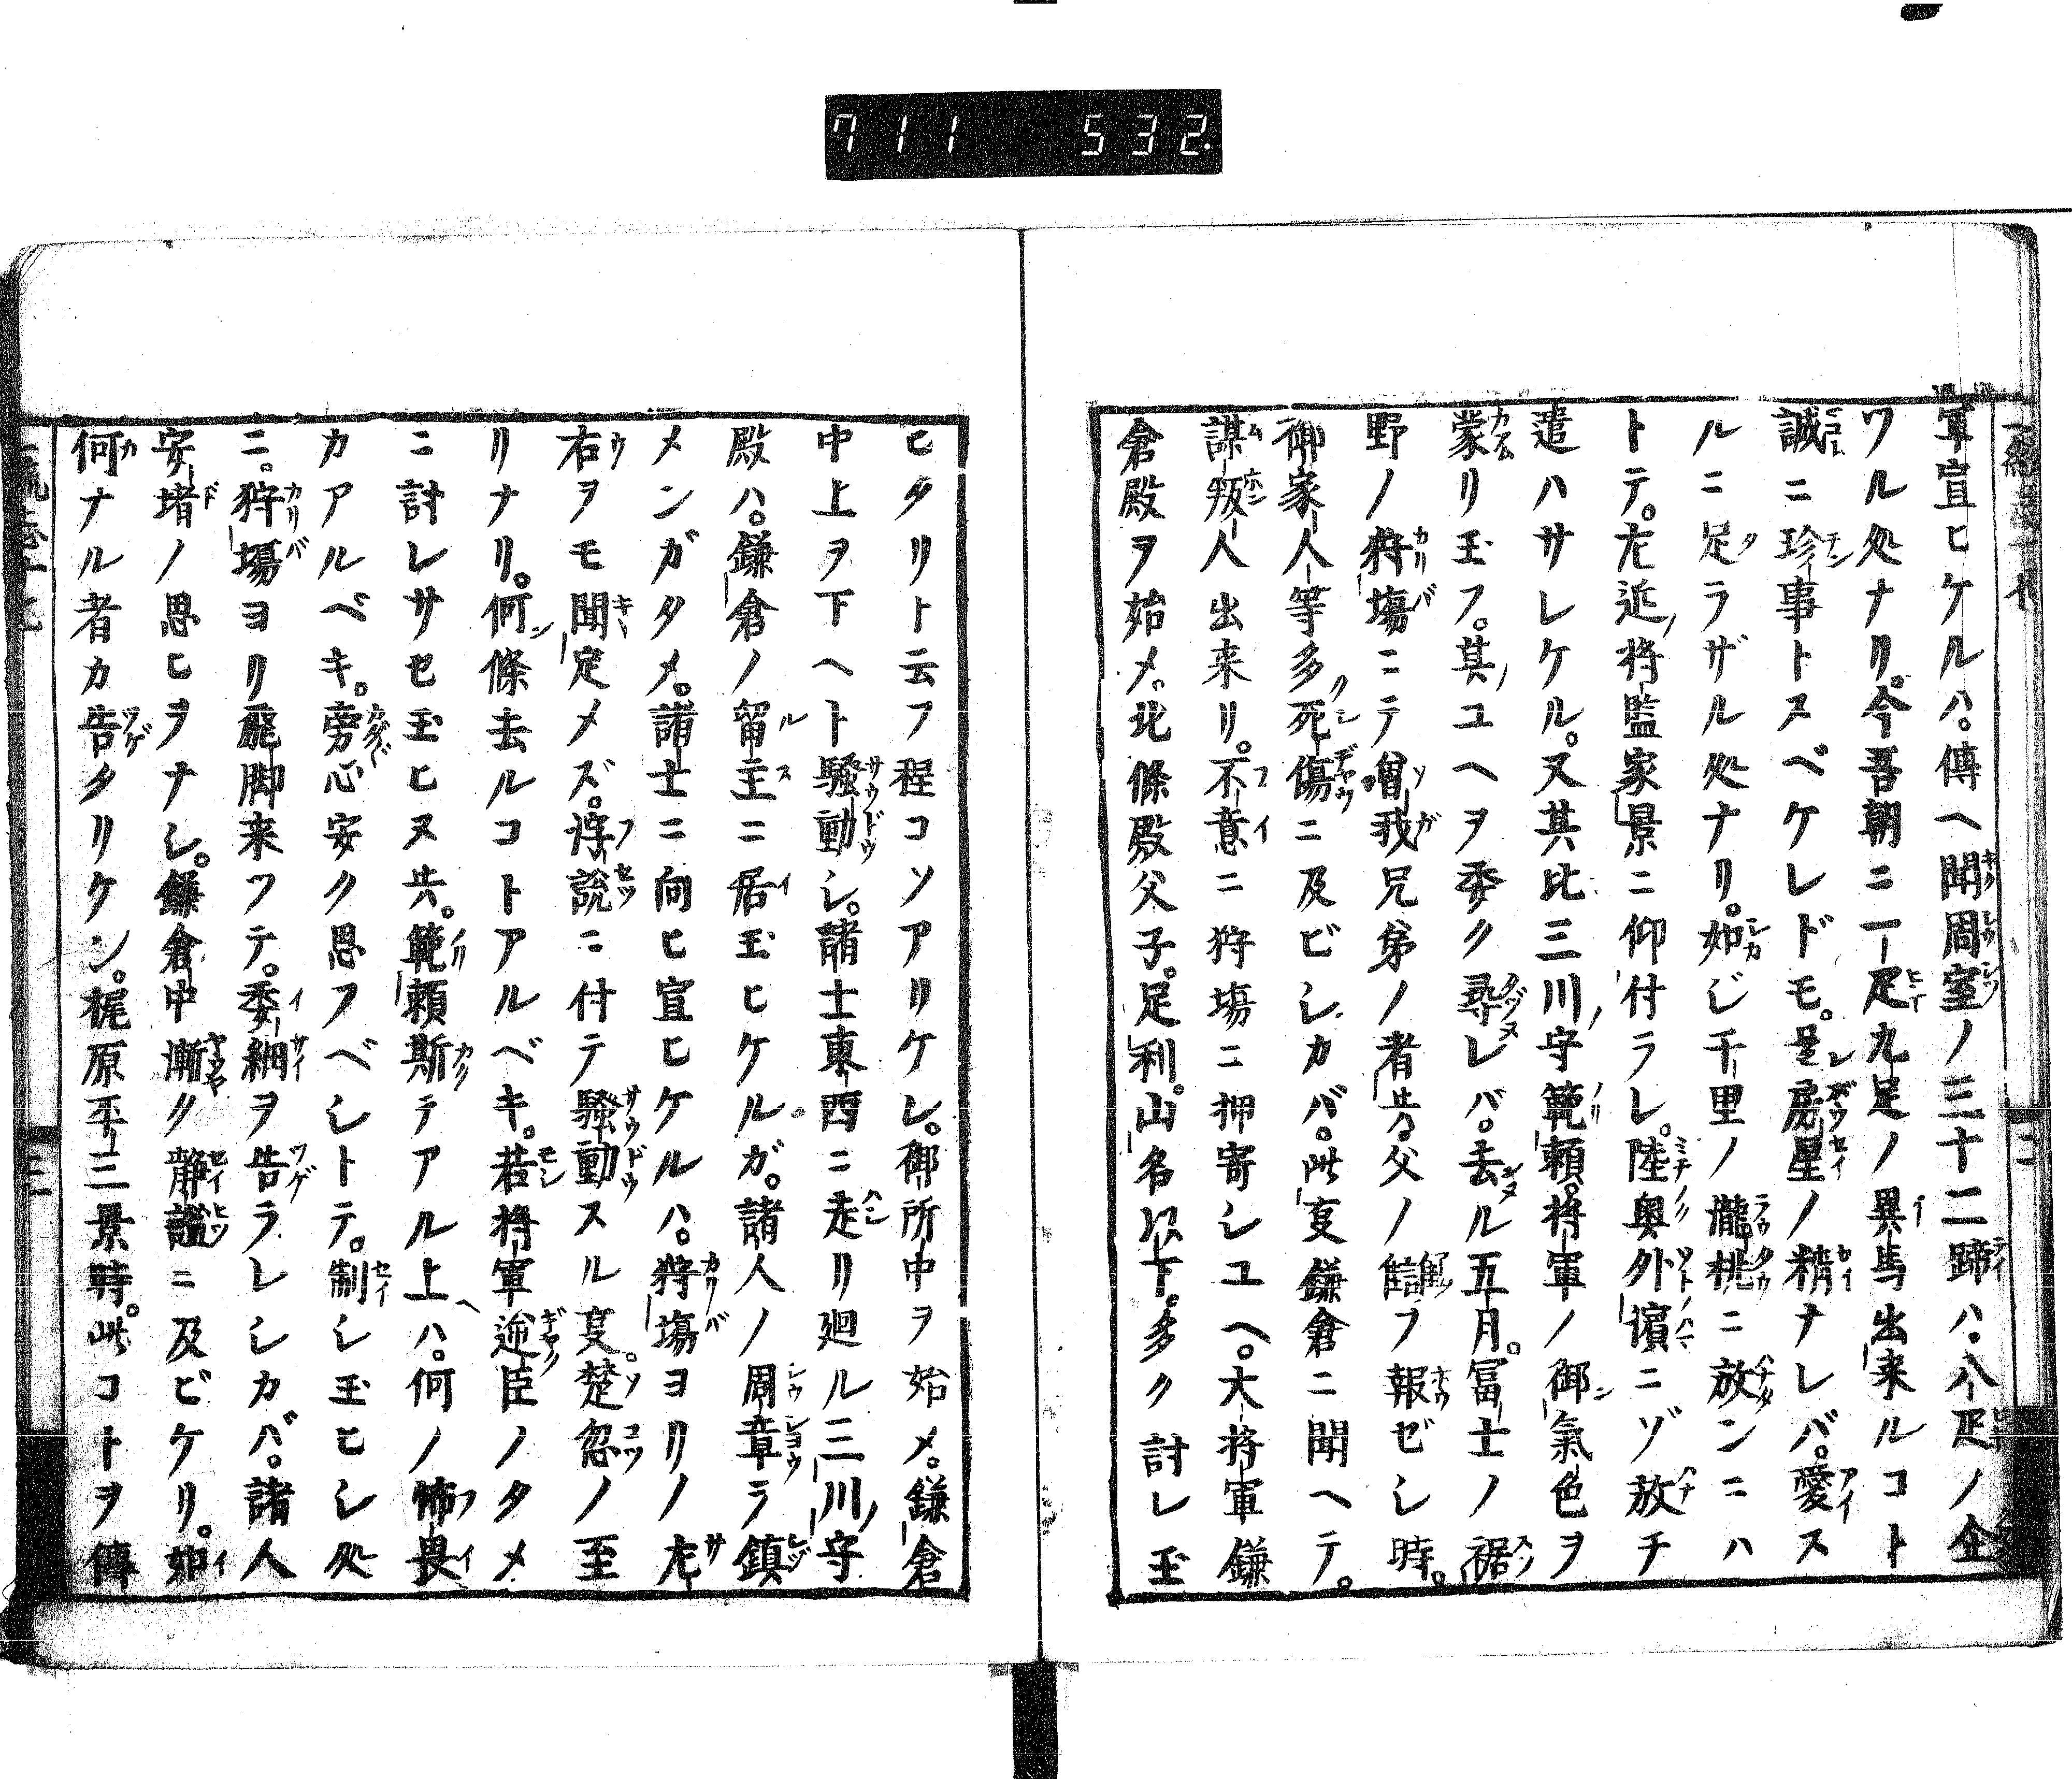 711 532
軍宣ヒケルハ。傳ヘ聞周室ノ三十二蹄ハ。八疋ノ企
ワル処ナリ。今吾朝ニ一疋九足ノ異馬出来ルコト
誠ニ珍事トスベケレドモ。是房星ノ精ナレバ。愛ス
ルニ足ラザル処ナリ。如ジ千里ノ瀧桃ニ放ンニハ
トテ。左近将監家景ニ仰付ラレ。陸奥外濱ニゾ放チ
遣ハサレケル。又其比三川守範頼。将軍ノ御氣色ヲ
蒙リ玉フ。其ユヘヲ委ク尋レバ。去ル五月。冨士ノ裾
野ノ狩場ニテ曽我兄弟ノ者共。父ノ讎ヲ報ゼシ時。
御家人等多死傷ニ及ビシカバ。此叓鎌倉ニ聞ヘテ。
謀叛人出来リ。不意ニ狩場ニ押寄シユヘ。大将軍鎌
倉殿ヲ始メ。北條殿父子。足利。山名以下。多ク討レ玉
ヒタリト云フ程コソアリケレ。御所中ヲ始メ。鎌倉
中上ヲ下ヘト騒動シ。諸士東西ニ走リ廻ル三川守
殿ハ。鎌倉ノ留主ニ居玉ヒケルガ。諸人ノ周章ヲ鎮
メンガタメ。諸士ニ向ヒ宣ヒケルハ。狩場ヨリノ左
右ヲモ聞定メズ。浮説ニ付テ騒動スル叓。楚忽ノ至
リナリ。何條去ルコトアルベキ。若将軍逆臣ノタメ
ニ討レサセ玉ヒヌ共。範頼斯テアル上ハ。何ノ怖畏
カアルベキ。旁心安ク思フベシトテ。制シ玉ヒシ処
ニ。狩場ヨリ飛脚来ツテ。委細ヲ告ラレシカバ。諸人
安堵ノ思ヒヲナシ。鎌倉中漸ク静謐ニ及ビケリ。如
何ナル者カ告タリケン。梶原平三景時。此コトヲ傳